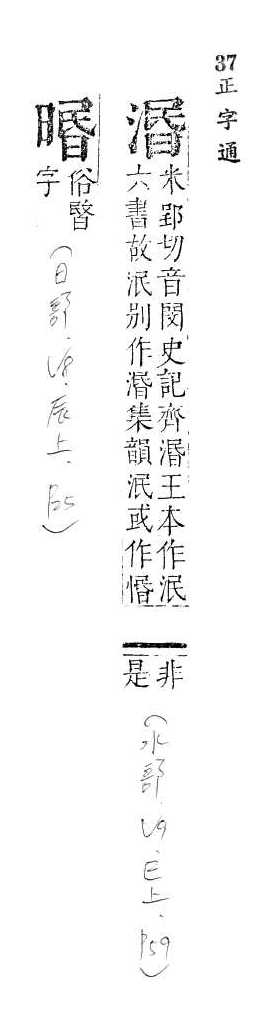 37正字通
湣
米郢切音閔史記齊湣王本作泯
六書故泯別作湣集韻泯或作惽
非
是
(水部、V9、巳上、P59)
俗暋
字
(日部、V8、辰上、P25)